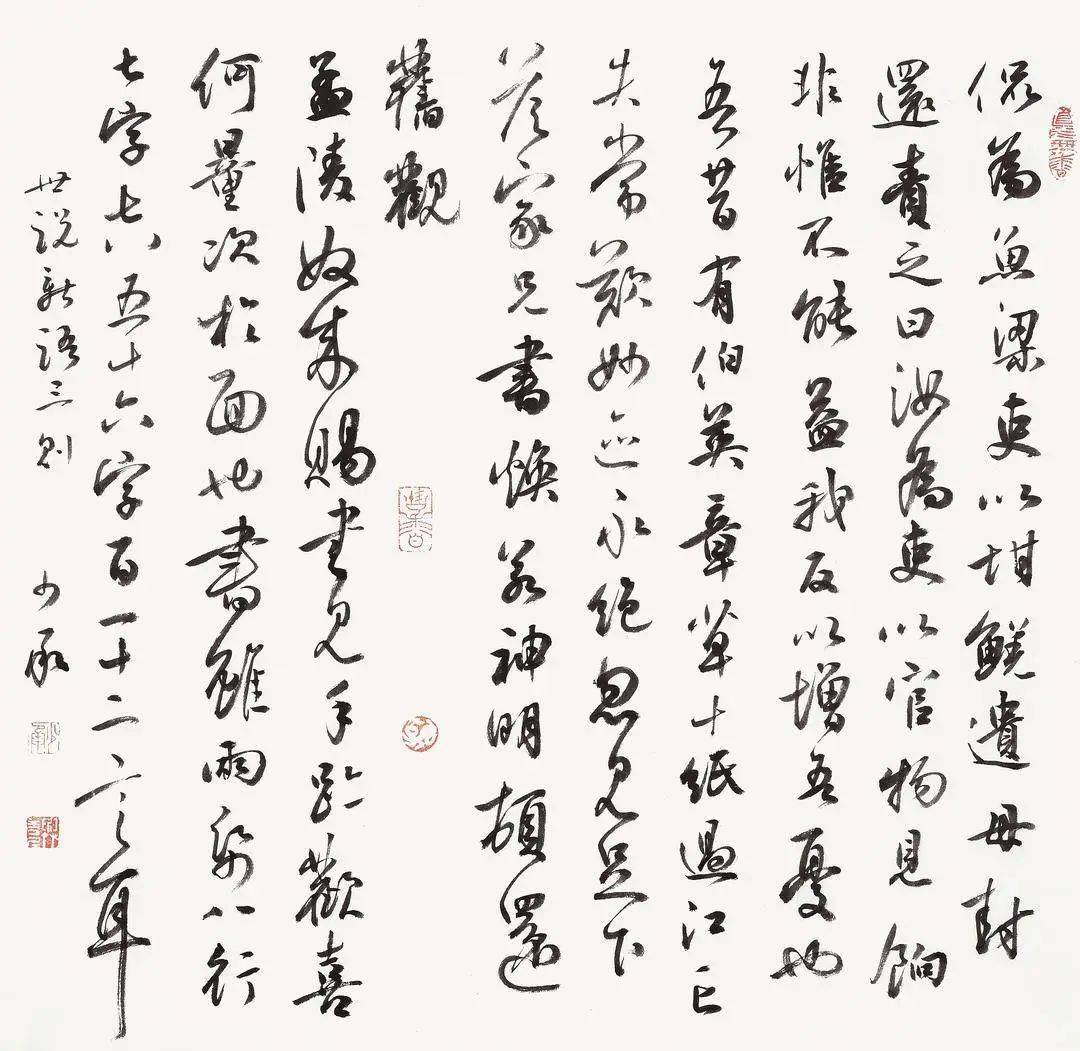 侃為魚梁吏以坩鮓遺母封
還責之曰汝為吏以官物見餉
非惟不能益我反以增吾憂也
吾昔有伯英章草十紙過江亡
失常歎妙迹永絕忽見足下
答家兄書煥若神明頓還
舊觀
孟陵奴來賜書見手跡歡喜
何量次於面也書雖兩紙八行
七字七八五十六字百一十二言耳
世説新語三則
少承